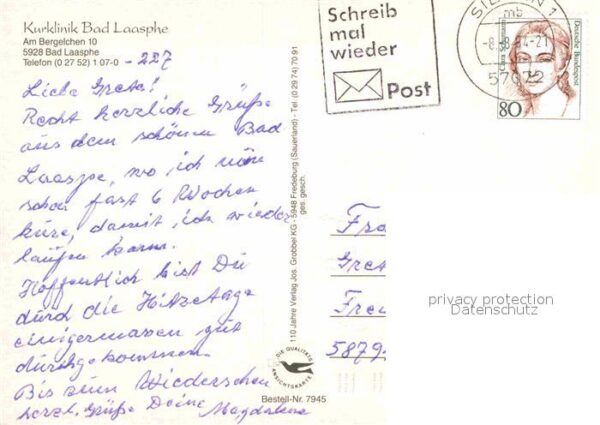 Kurklinik Bad Laasphe
Am Bergelchen 10
5928 Bad Laasphe
Telefon (0 27 52) 1 07-0 -227
Liebe Greta!
Recht herzliche Grüße
aus dem schönen Bad
Laaspe, wo ich nun
schon fast 6 Wochen
kure, damit ich wieder
laufen kann.
Hoffentlich bist Du
durch die Hitzetage
einigermassen gut
durchgekommen.
Bis zum Wiedersehen
herzl. Grüße Deine Magdalena
110 Jahre Verlag Jos. Grobbel KG - 5948 Fredeburg (Sauerland) - Tel. (0 29 74) 70 91
ges. gesch.
DIE QUALITÄTS
ANSICHTSKARTE
Bestell-Nr. 7945
Schreib
mal
wieder
Post
SIEGEN 1
mb
-8.-8.94-21
57072
Deutsche Bundespost
80
Fra
Gret
Freu
5879
privacy protection
Datenschutz